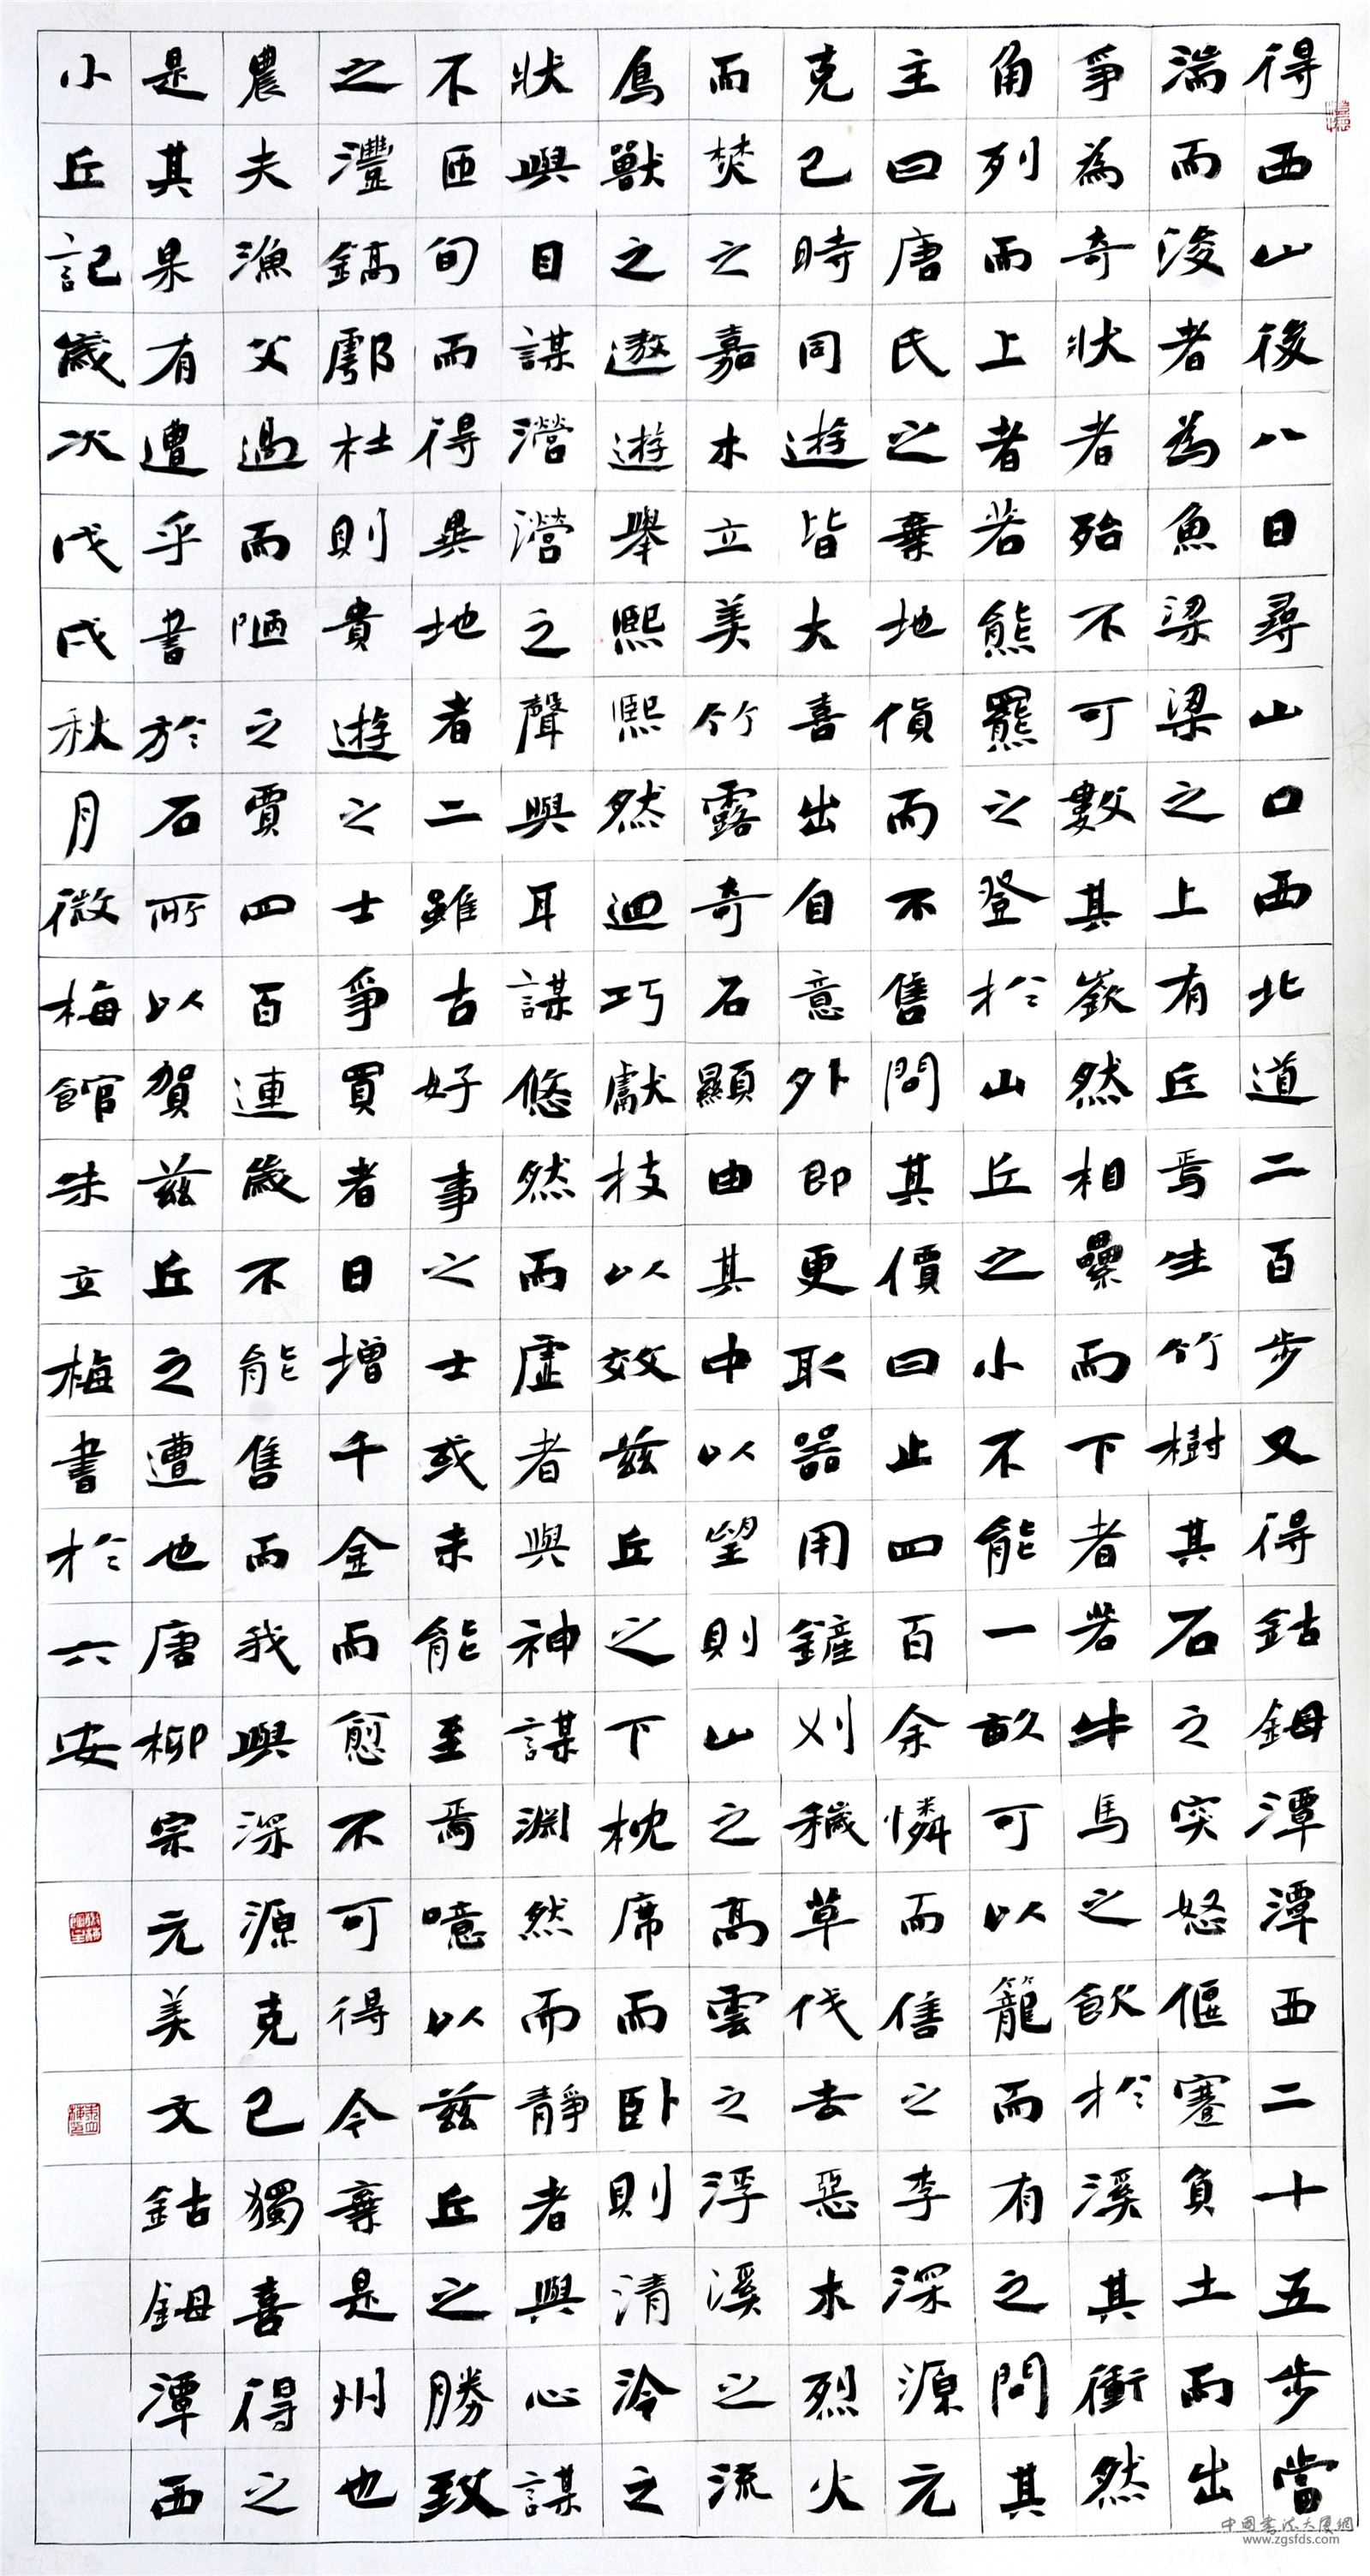 得西山後八日尋山口西北道二百步又得鈷鉧潭潭西二十五步當
湍而浚者為魚梁梁之上有丘焉生竹樹其石之突怒偃蹇負土而出
爭為奇狀者殆不可數其嶔然相纍而下者若牛馬之飲於溪其衝然
角列而上者若熊羆之登於山丘之小不能一畝可以籠而有之問其
主曰唐氏之棄地貨而不售問其價曰止四百余憐而售之李深源元
克己時同遊皆大喜出自意外即更取器用鏟刈穢草伐去惡木烈火
而焚之嘉木立美竹露奇石顯由其中以望則山之高雲之浮溪之流
鳥獸之遨遊舉熙熙然迴巧獻技以效茲丘之下枕席而卧則清泠之
狀與目謀瀯瀯之聲與耳謀悠然而虛者與神謀淵然而靜者與心謀
不匝旬而得異地者二雖古好事之士或未能至焉噫以茲丘之勝致
之灃鎬鄠杜則貴遊之士爭買者日增千金而愈不可得今棄是州也
農夫漁父過而陋之賈四百連歲不能售而我與深源克己獨喜得之
是其果有遭乎書於石所以賀茲丘之遭也唐柳宗元美文鈷鉧潭西
小丘記歲次戊戌秋月微梅館朱立梅書於六安
中國書法大厦網
www.zgsfds.com